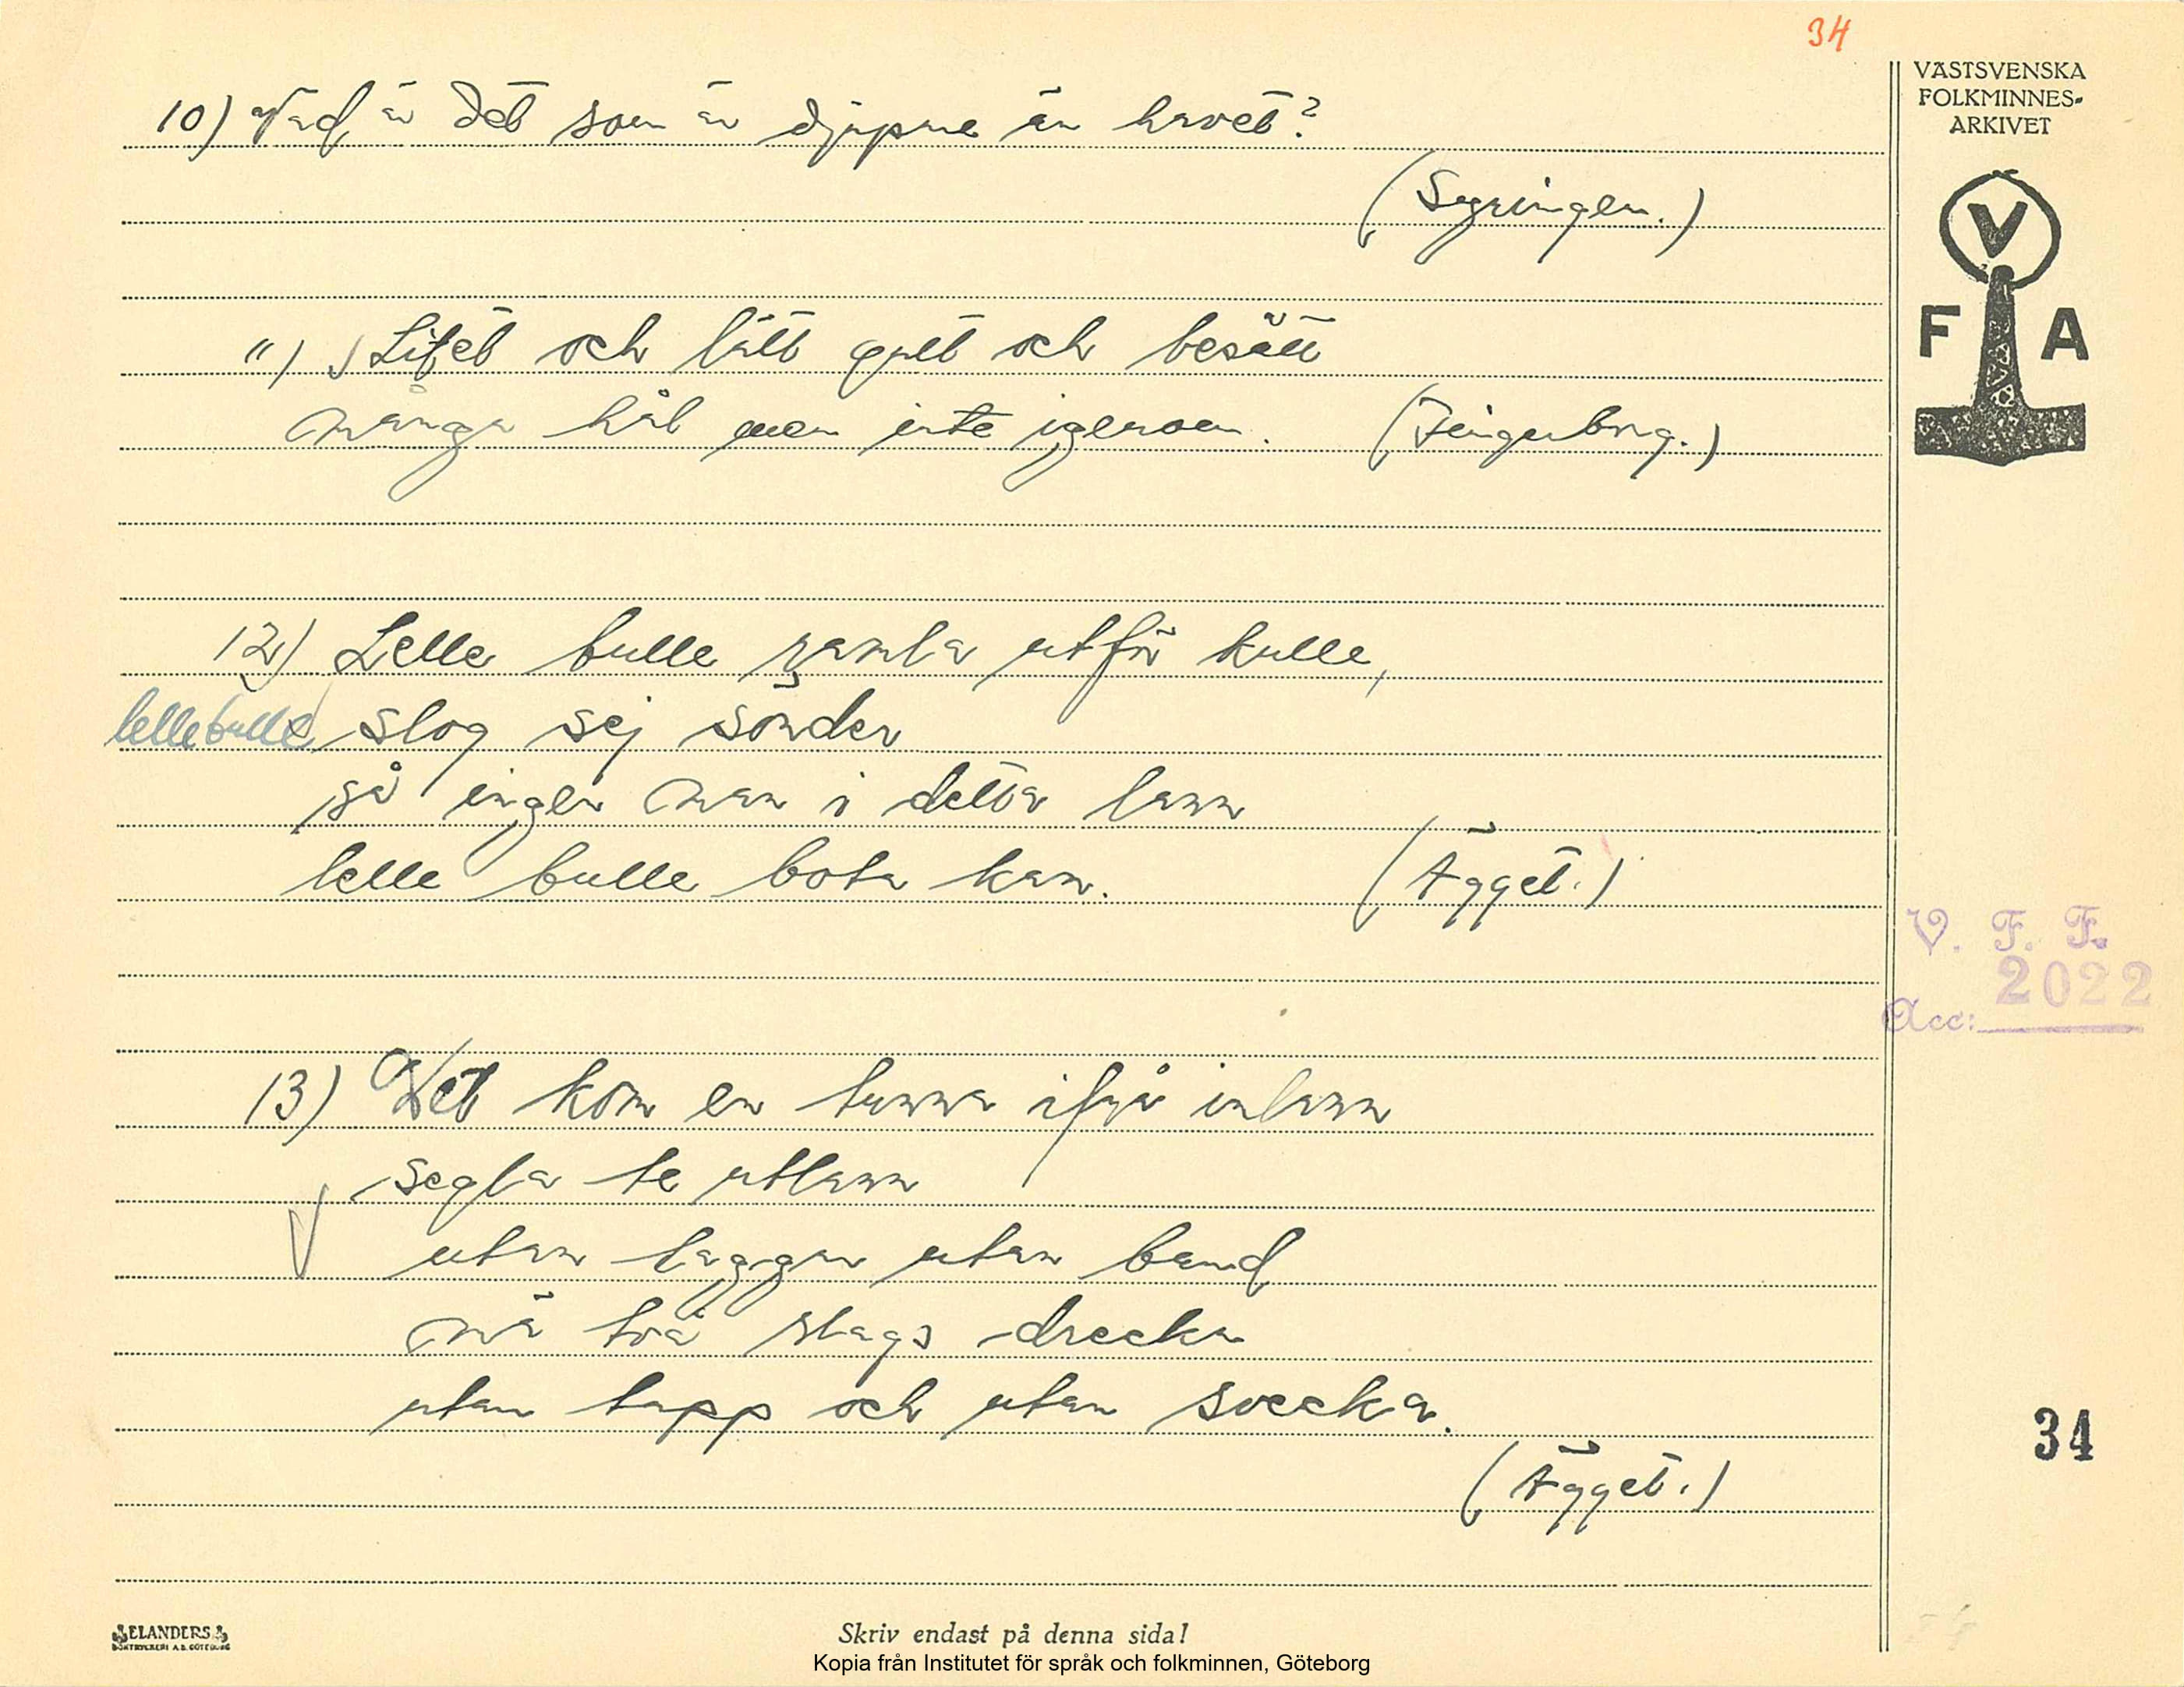 34
VÄSTSVENSKA
FOLKMINNES-
ARKIVET
V
F A
10) Vad är det som är djupare än havet?
(Syringen.)
11) Litet och lätt gult och besätt
många hål men inte igenom. (Fingerborg.)
12) Lelle bulle ramla utför kulle,
lellebulle slog sej sönder
så ingen man i detta lann
lelle bulle bota kan. (Ägget.)
V. F. F.
2022
Acc:
13) Det kom en tunna ifrå inlann
segla te utlann
utan laggar utan band
må två slags drecka
utan tapp och utan svecka.
(Ägget.)
34
ELANDERS
BOKTRYCKERI A.B. GÖTEBORG
Skriv endast på denna sida!
Kopia från Institutet för språk och folkminnen, Göteborg